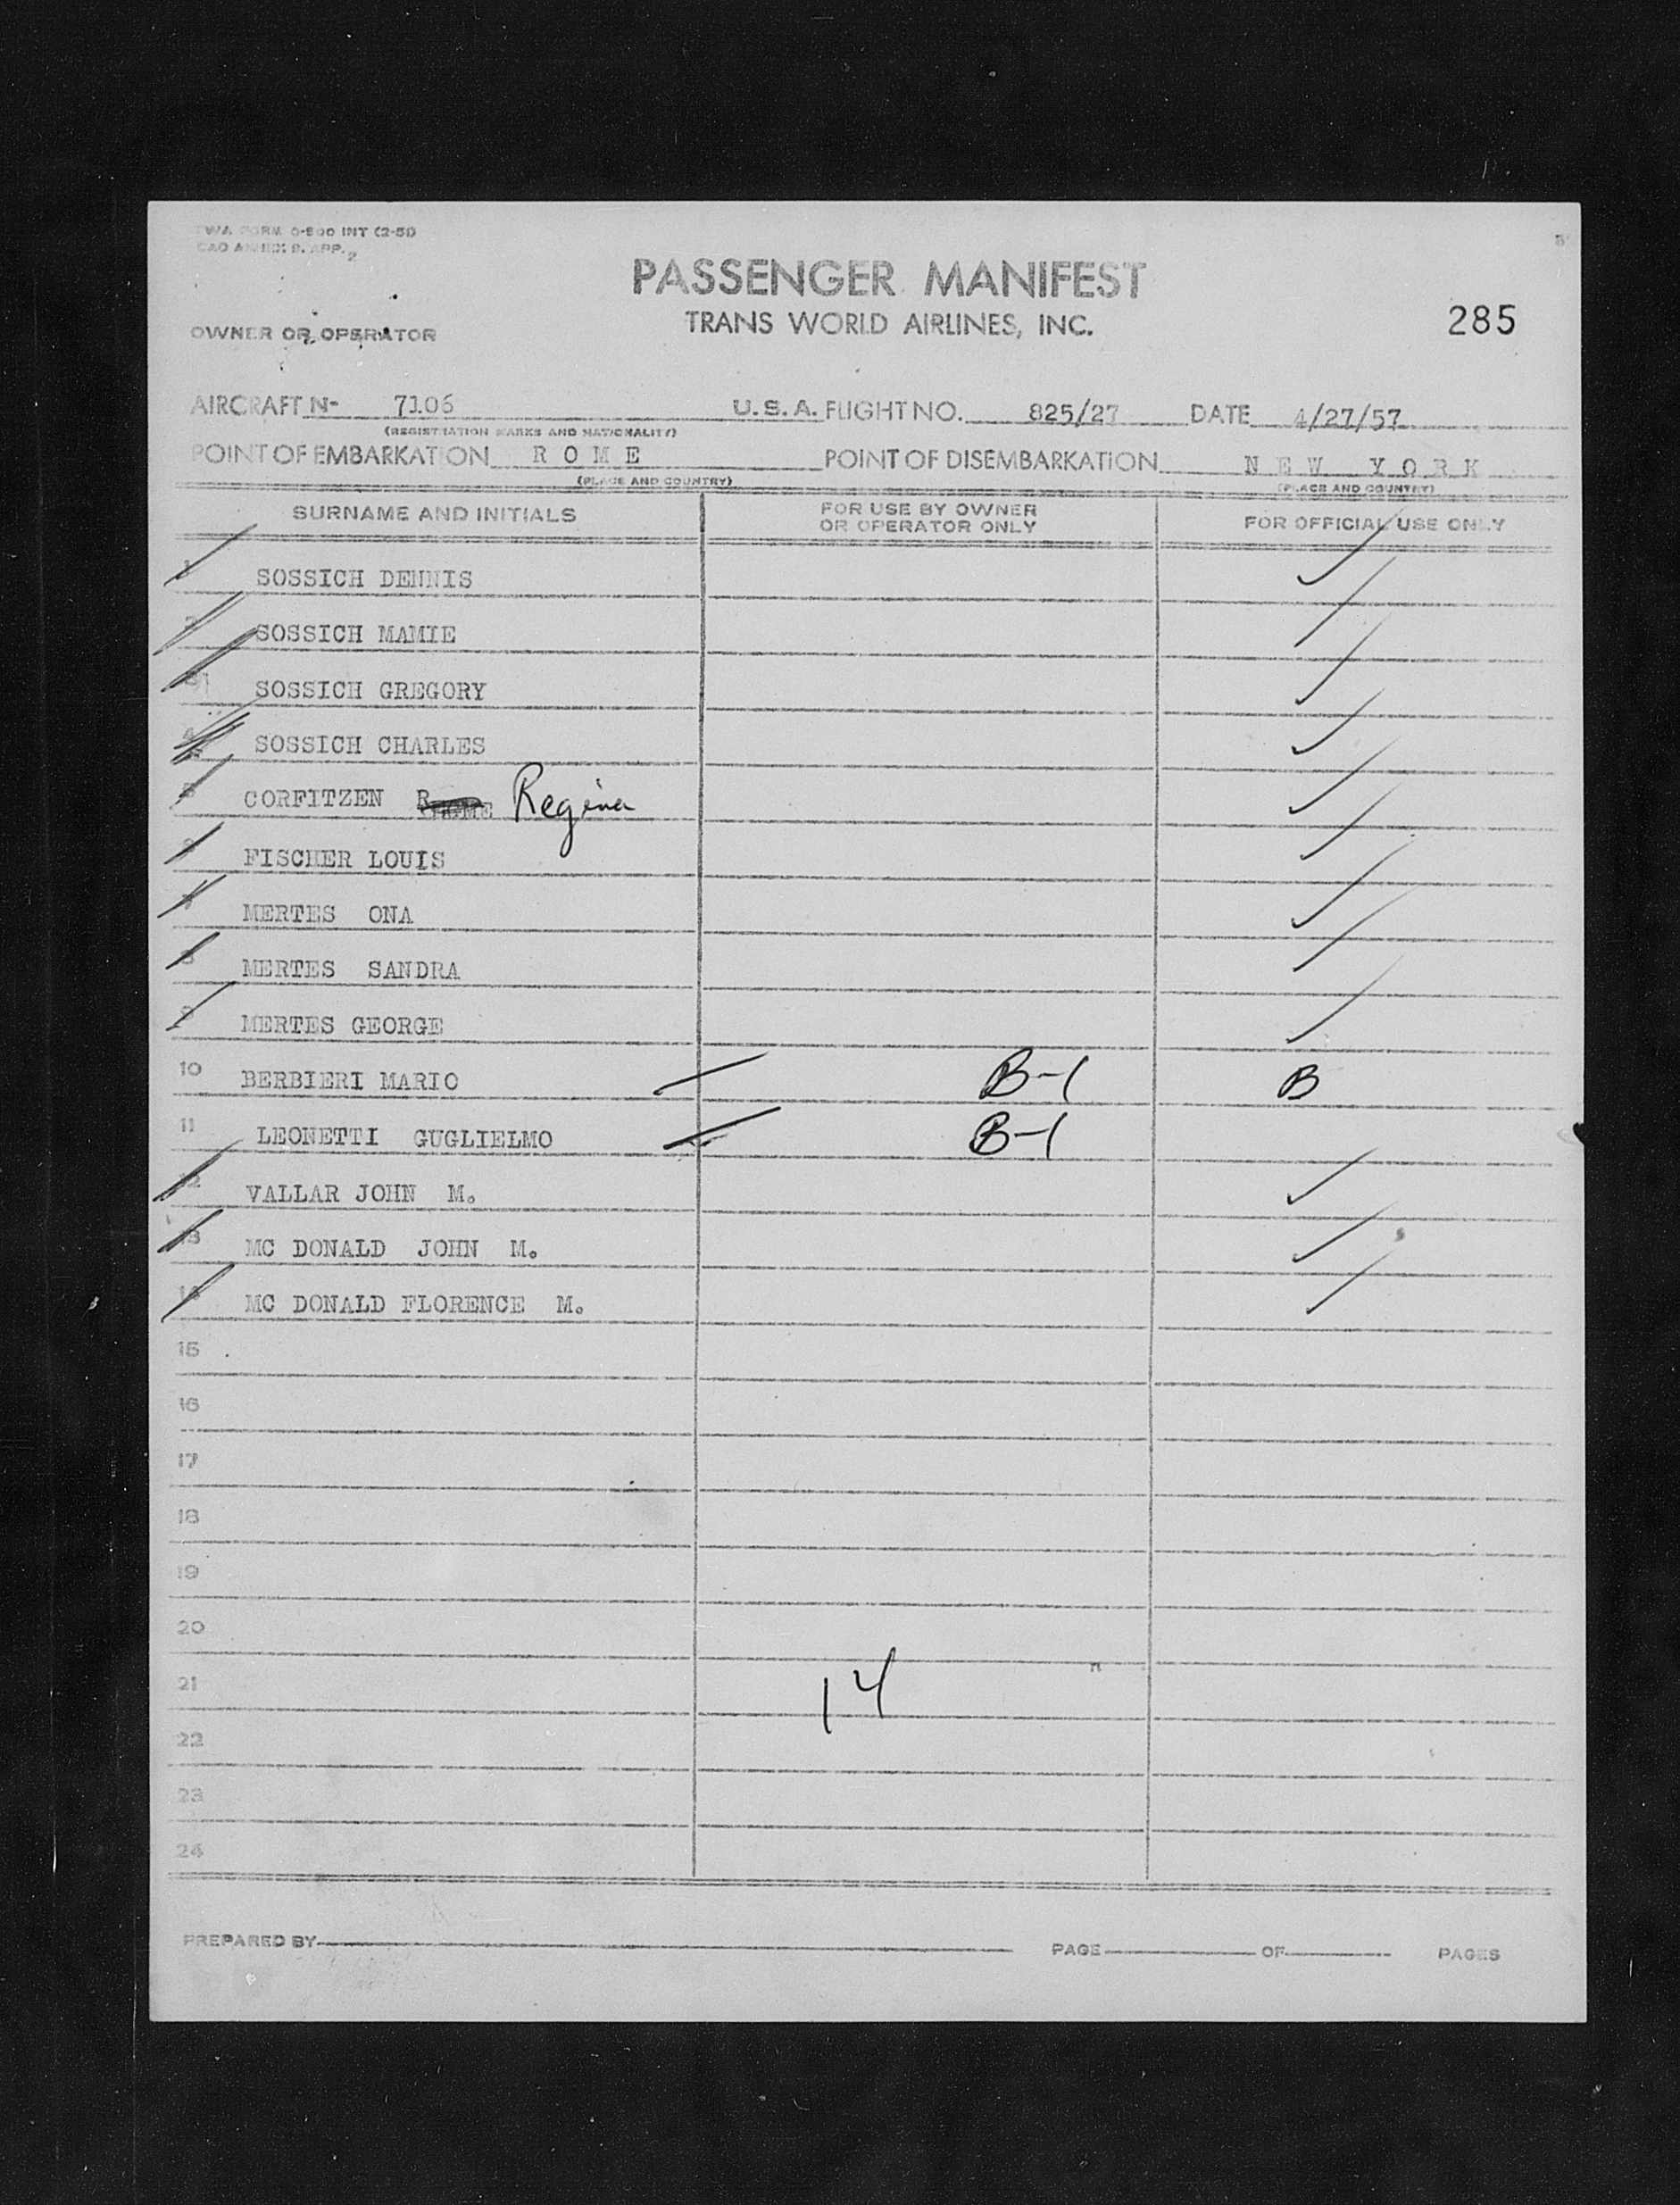 TWA FORM 0-800 INT (2-51)
CAO ANNEX 9. APP. 2
PASSENGER MANIFEST
TRANS WORLD AIRLINES, INC.
285
OWNER OR OPERATOR
AIRCRAFT N- 7106 U.S.A. FLIGHT NO. 825/27 DATE 4/27/57
(REGISTRATION MARKS AND NATIONALITY)
POINT OF EMBARKATION R O M E POINT OF DISEMBARKATION N E W Y O R K
(PLACE AND COUNTRY) (PLACE AND COUNTRY)
SURNAME AND INITIALS FOR USE BY OWNER OR OPERATOR ONLY FOR OFFICIAL USE ONLY
1 SOSSICH DENNIS
2 SOSSICH MAMIE
3 SOSSICH GREGORY
4 SOSSICH CHARLES
CORFITZEN Regina
FISCHER LOUIS
MERTES ONA
MERTES SANDRA
9 MERTES GEORGE
10 BERBIERI MARIO B-1 B
11 LEONETTI GUGLIELMO B-1
12 VALLAR JOHN M.
13 MC DONALD JOHN M.
14 MC DONALD FLORENCE M.
15
16
17
18
19
20
21 14
22
23
24
PREPARED BY PAGE OF PAGES